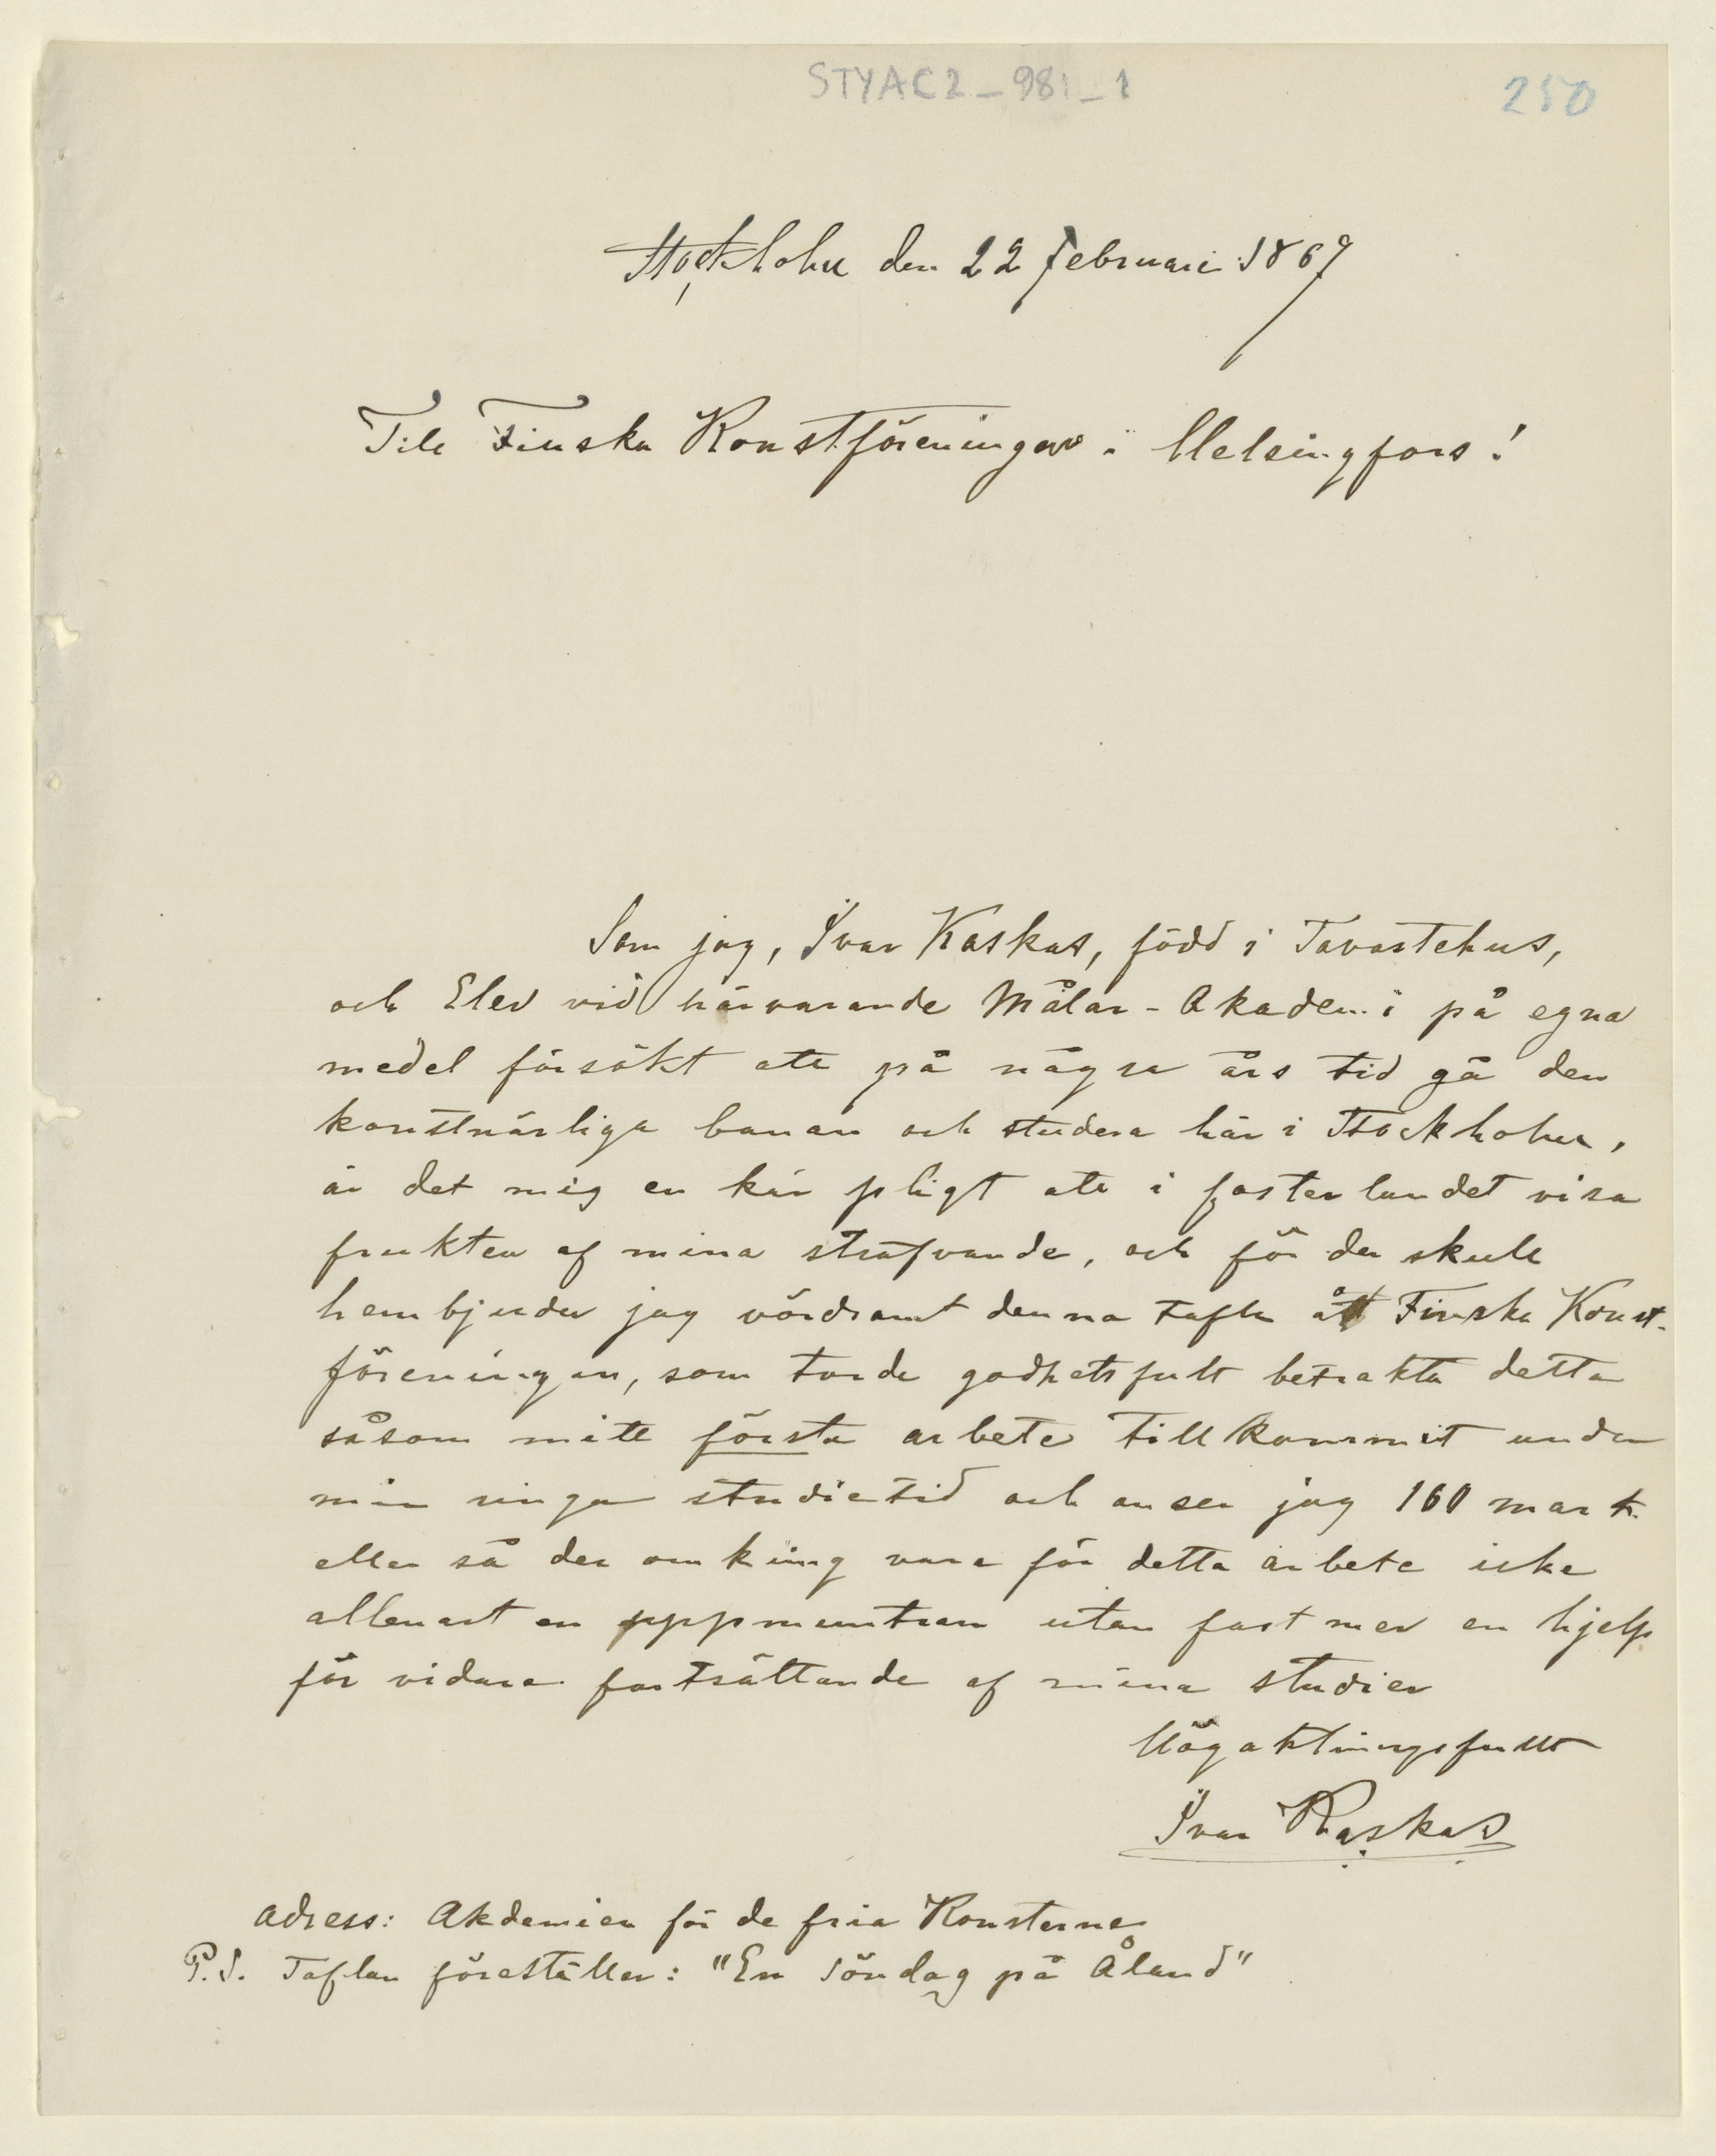 STYAC2_981_1
250
Stockholm den 22 Februari 1867
Till Finska Konstföreningen i Helsingfors!
Som jag, Ivar Kaskas, född i Tavastehus,
och Elev vid härvarande Målar-Akademi på egna
medel försökt att på några års tid gå den
konstnärliga banan och studera här i Stockholm,
är det mig en kär pligt att i fosterlandet visa
frukten af mina sträfvande, och för den skull
hembjuder jag vördsamt denna tafla åt Finska Konst-
föreningen, som torde godhetsfullt betrakta detta
såsom mitt första arbete tillkommit under
min ringa studietid och anser jag 160 mark
eller så der omkring vara för detta arbete icke
allenast en uppmuntran utan fast mer en hjelp
för vidare fortsättande af mina studier
Högaktningsfullt
Ivar Kaskas
Adress: Akdemien för de fria Konsterna
P.S. Taflan föreställer: "En Söndag på Åland"